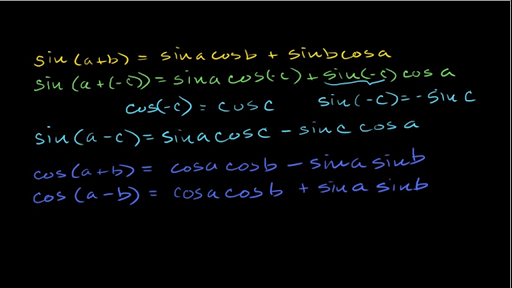 sin(a+b) = sinacosb + sinbcosa
sin(a+(-c)) = sinacos(-c) + sin(-c) cosa
cos(-c) = cosc sin(-c) = -sinc
sin(a-c) = sinacosc - sinc cosa
cos(a+b) = cosacosb - sinasinb
cos(a-b) = cosacosb + sinasinb